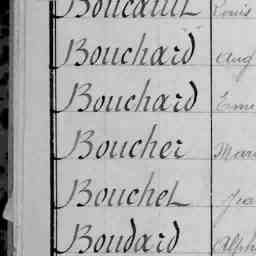 Boucault Louis
Bouchard Aug
Bouchard
Boucher Mari
Bouchet
Boudard Alph